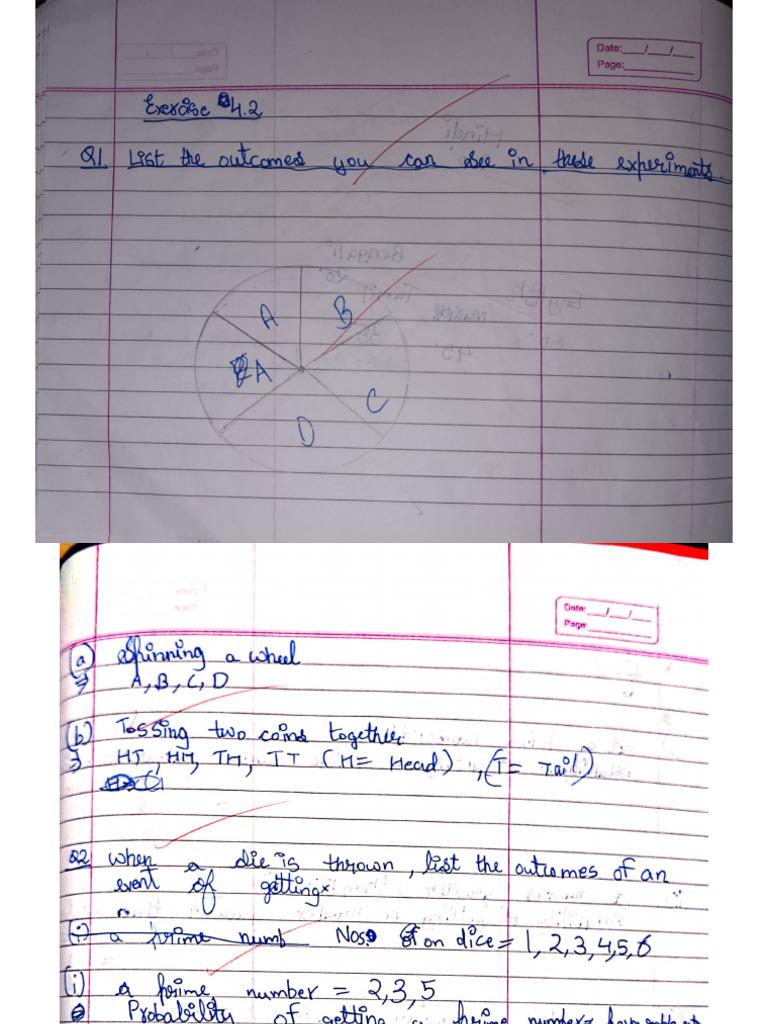 Date:___/___/___
Page:___________
Exercise 4.2
Q1. List the outcomes you can see in these experiments.
A B
A C
D
Date: ___/___/___
Page: ___________
(a) Spinning a wheel
⇒ A, B, C, D
(b) Tossing two coins together
⇒ HT, HH, TH, TT (H= Head), (T= Tail)
Q2 When a die is thrown, list the outcomes of an
event of getting
(i) a prime numb Nos. on dice = 1, 2, 3, 4, 5, 6
(i) a prime number = 2, 3, 5
Probability of getting a prime number=